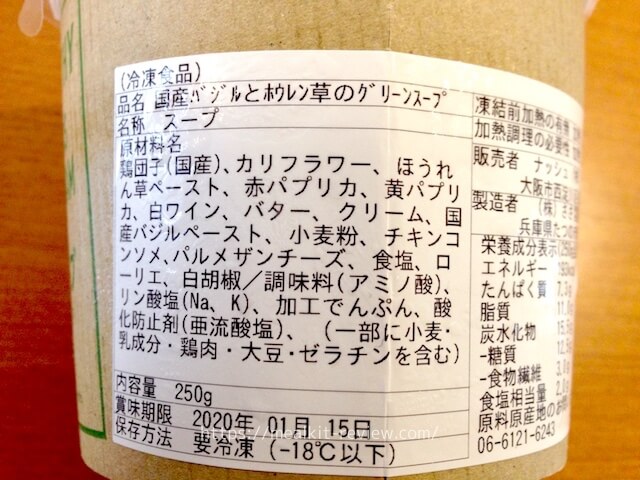 (冷凍食品)
品名 国産ﾊﾞｼﾞﾙとﾎｳﾚﾝ草のｸﾞﾘｰﾝｽｰﾌﾟ
名称 スープ
原材料名
鶏団子(国産)、カリフラワー、ほうれ
ん草ペースト、赤パプリカ、黄パプリ
カ、白ワイン、バター、クリーム、国
産バジルペースト、小麦粉、チキンコ
ンソメ,パルメザンチーズ、食塩、ロ
ーリエ、白胡椒／調味料(アミノ酸)、
リン酸塩(Na、K)、加工でんぷん、酸
化防止剤(亜流酸塩)、（一部に小麦・
乳成分・鶏肉・大豆・ゼラチンを含む)
内容量 250g
賞味期限 2020年 01月 15日
保存方法 要冷凍（-18℃以下）
凍結前加熱の有無
加熱調理の必要性
販売者 ナッシュ
大阪市西淀
製造者
兵庫県たつの
栄養成分表示
エネルギー
たんぱく質
脂質
炭水化物
-糖質
-食物繊維
食塩相当量
原料原産地の
06-6121-6243
https://mealkit-review.com/